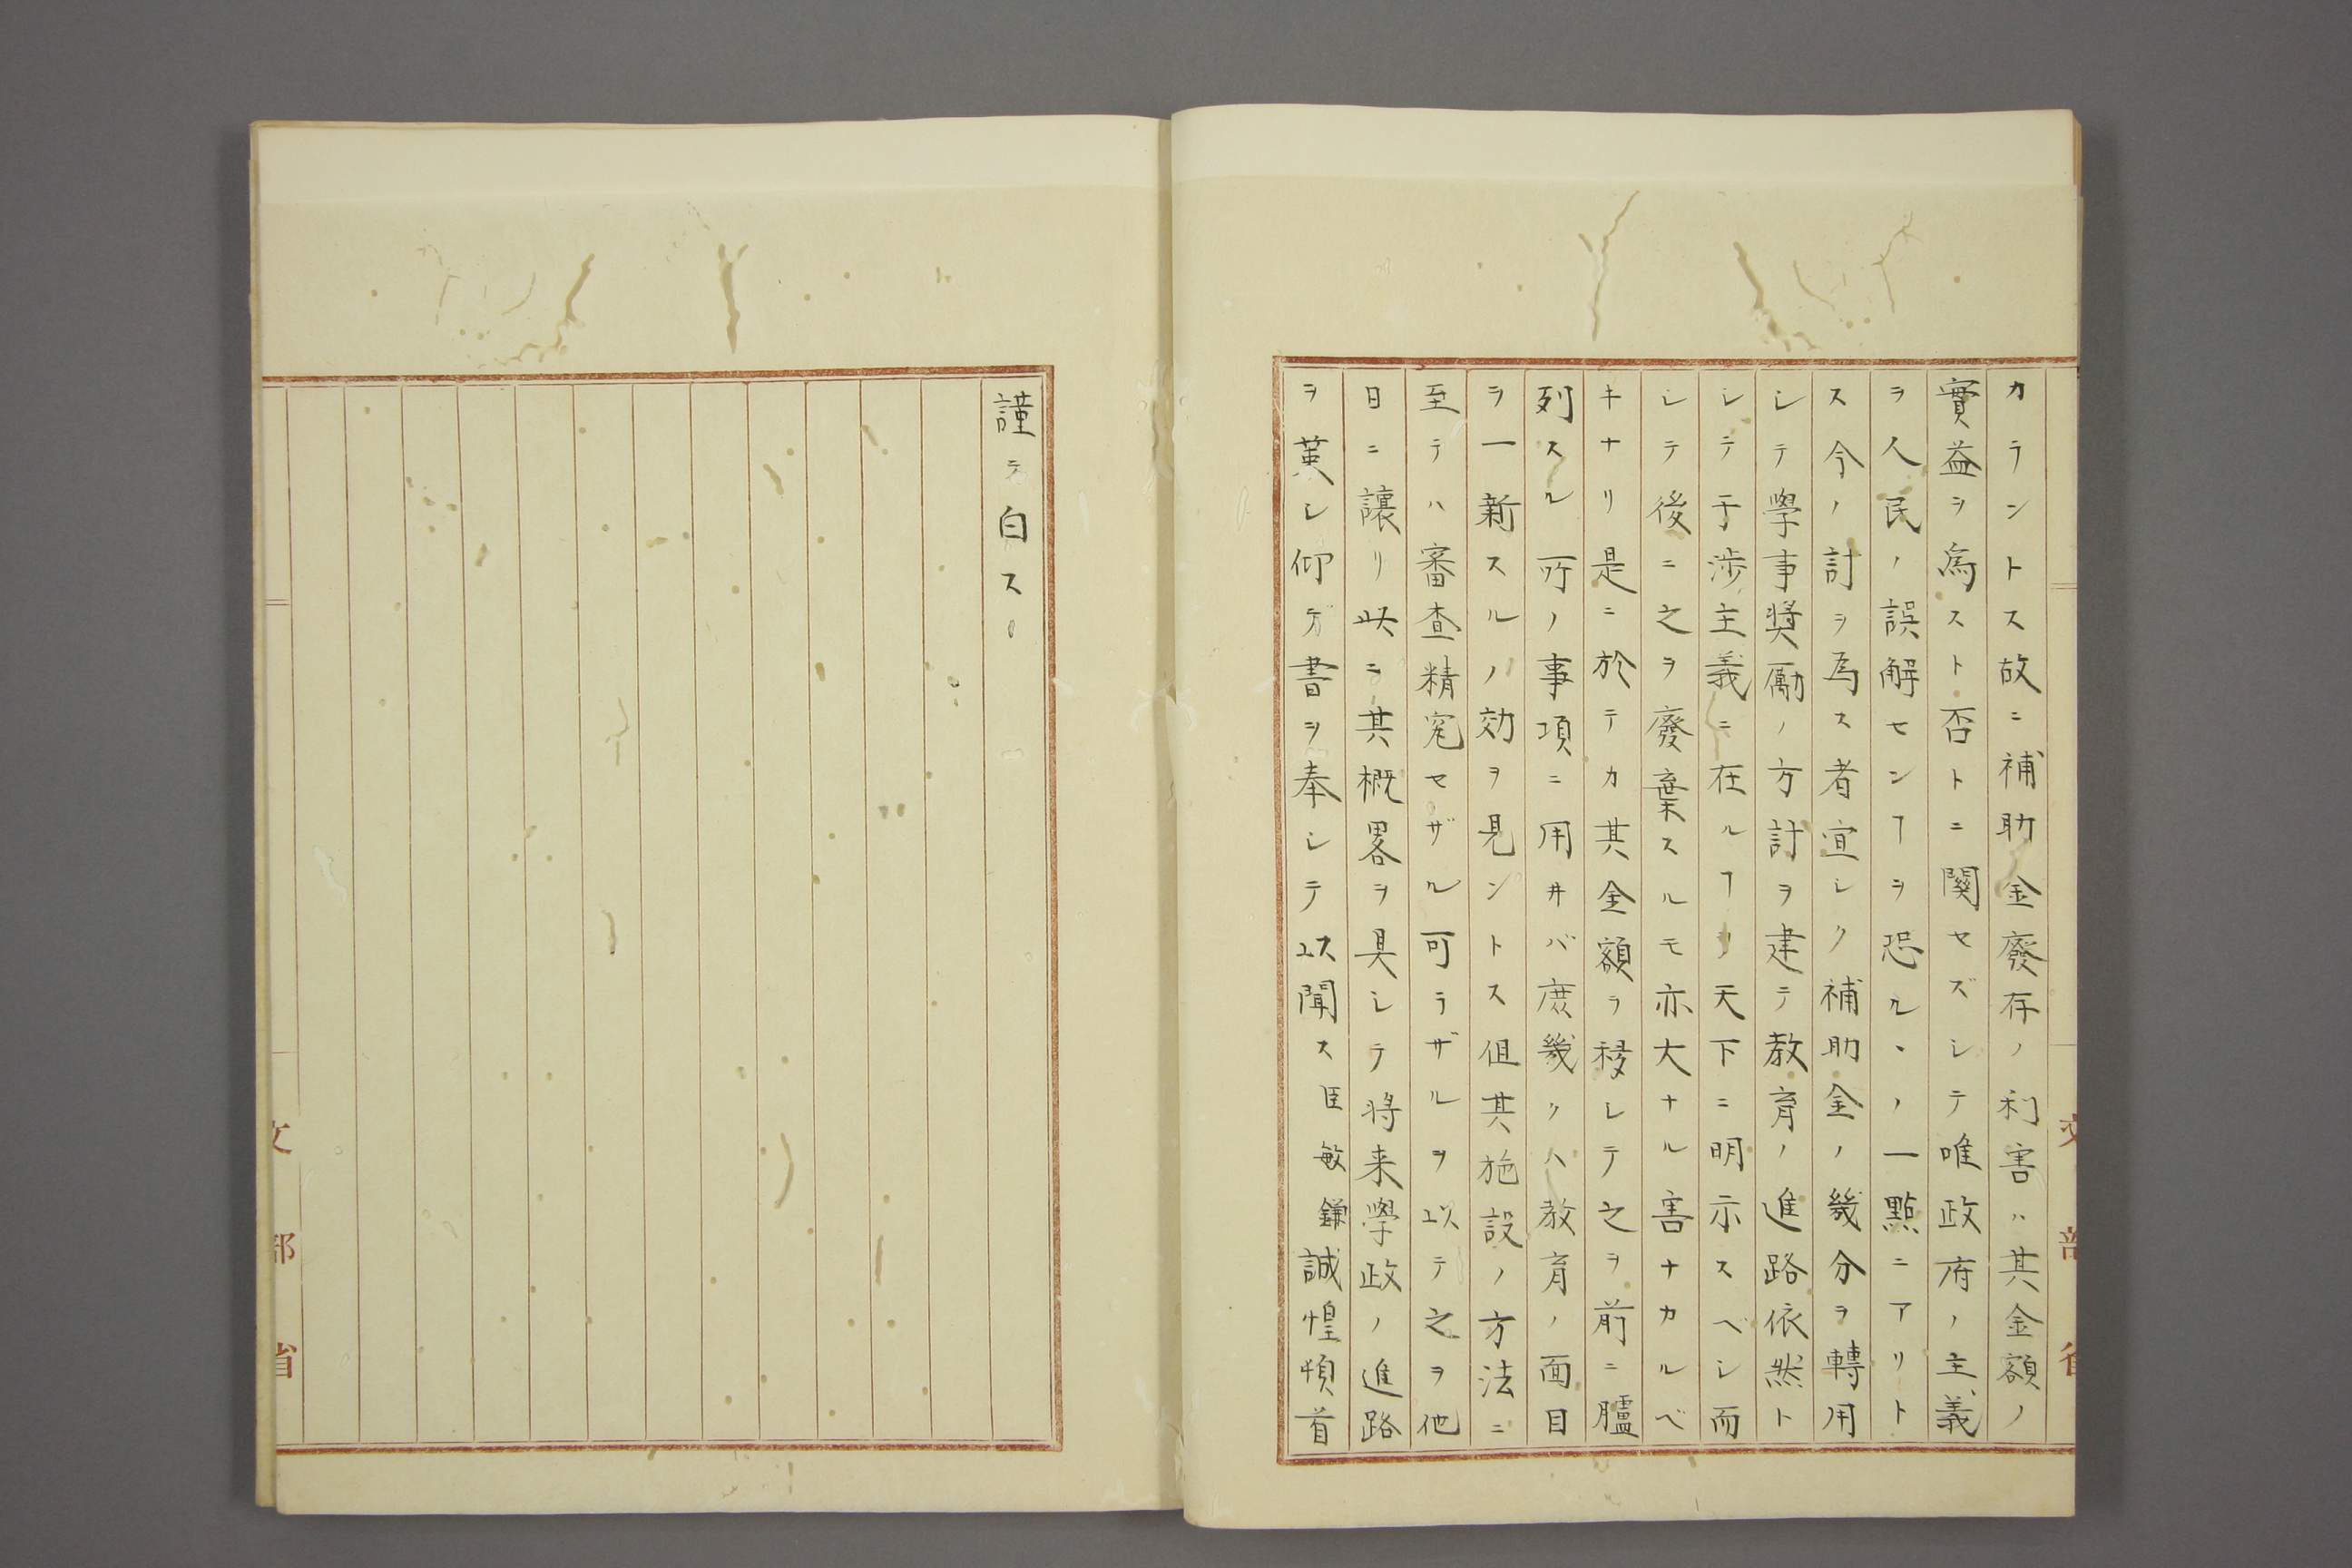 カラントス故ニ補助金廢存ノ利害ハ其金額ノ
實益ヲ為スト否トニ関セズシテ唯政府ノ主義
ヲ人民ノ誤解センヿヲ恐ルヽノ一點ニアリト
ス今ノ計ヲ為ス者宜シク補助金ノ幾分ヲ轉用
シテ學事奬勵ノ方計ヲ建テ教育ノ進路依然ト
シテ干渉主義ニ在ルヿヲ天下ニ明示スベシ而
シテ後ニ之ヲ廢棄スルモ亦大ナル害ナカルベ
キナリ是ニ於テカ其金額ヲ移シテ之ヲ前ニ臚
列スル所ノ事項ニ用井バ庶幾クハ教育ノ面目
ヲ一新スルノ効ヲ見ントス但其施設ノ方法ニ
至テハ審査精究セザル可ラザルヲ以テ之ヲ他
日ニ讓リ此ニ其概畧ヲ具シテ将来學政ノ進路
ヲ冀シ仰ギ書ヲ奉シテ以聞ス臣敏鎌誠惶頓首
謹テ白ス
文部省
文部省